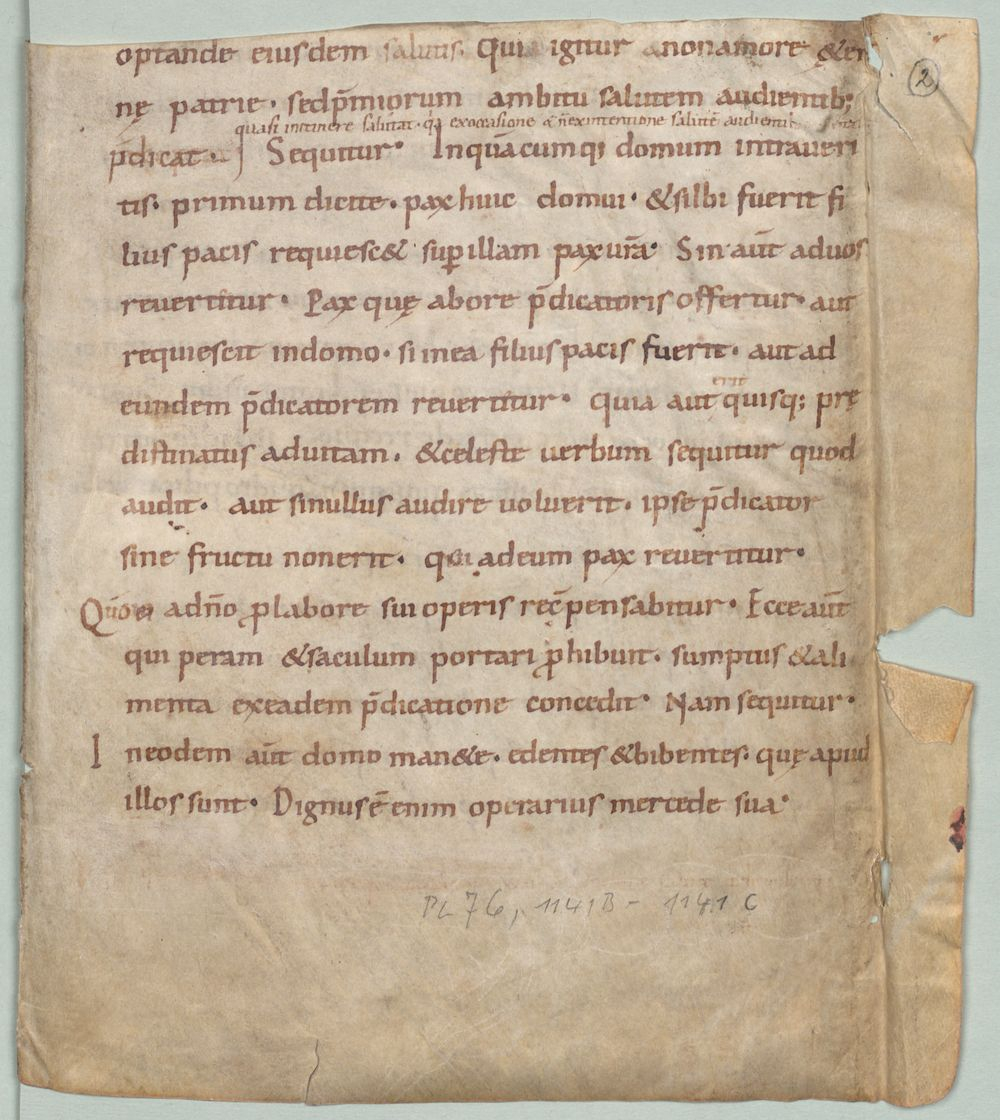 optande eiusdem salutis. Qui igitur a non amore &er
nę patrie. sed p̄miorum ambitu salutem audientib;
quasi in itinere salutat. q̄a ex occasione & n̄ ex intentione salutē audienti
p̄dicat. Sequitur. In quācumq; domum intraueri
tis. primum dicite. pax huic domui. & si ibi fuerit fi
lius pacis requiesc& sup̄ illam pax ur̄a. Sin aūt ad uos
reuertitur. Pax quę ab ore p̄dicatoris offertur. aut
requiescit in domo. si in ea filius pacis fuerit. aut ad
erit
eundem p̄dicatorem reuertitur. Quia aut quisq; prę
distinatus ad uitam. & celeste uerbum sequitur quod
audit. aut si nullus audire uoluerit. ipse p̄dicator
sine fructu non erit. qui ad eum pax reuertitur.
Quō ei a dn̄o ꝓ labore sui operis rec̄pensabitur. Ecce aūt
qui peram & saculum portari ꝓhibuit. sumptus & ali
menta ex eadem p̄dicatione concedit. Nam sequitur.
In eodem aūt domo man&e. edentes & bibentes. quę apud
illos sunt. Dignus ē enim operarius mercede sua.
PL 76, 1141B - 1141 C
2